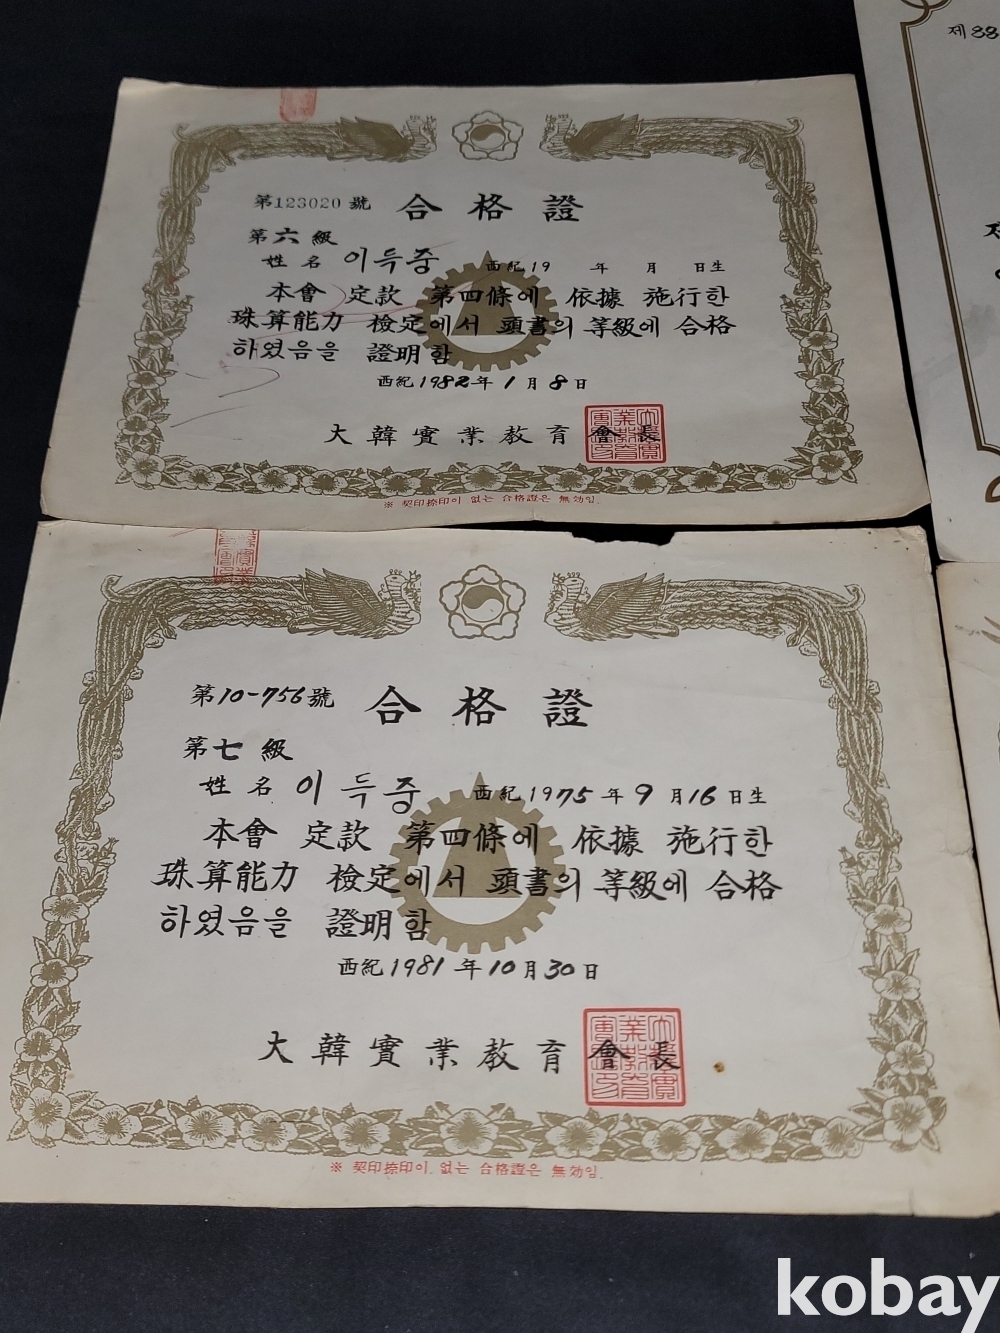 第123020號 合格證
第六級
姓名 이득중 西紀19 年 月 日生
本會 定款 第四條에 依據 施行한
珠算能力 檢定에서 頭書의 等級에 合格
하였음을 證明함
西紀1982年1月8日
大韓實業敎育會長
※ 契印捺印이 없는 合格證은 無効임.
第10-756號 合格證
第七級
姓名 이득중 西紀1975年9月16日生
本會 定款 第四條에 依據 施行한
珠算能力 檢定에서 頭書의 等級에 合格
하였음을 證明함
西紀1981年10月30日
大韓實業敎育會長
※ 契印捺印이 없는 合格證은 無効임.
제88
kobay